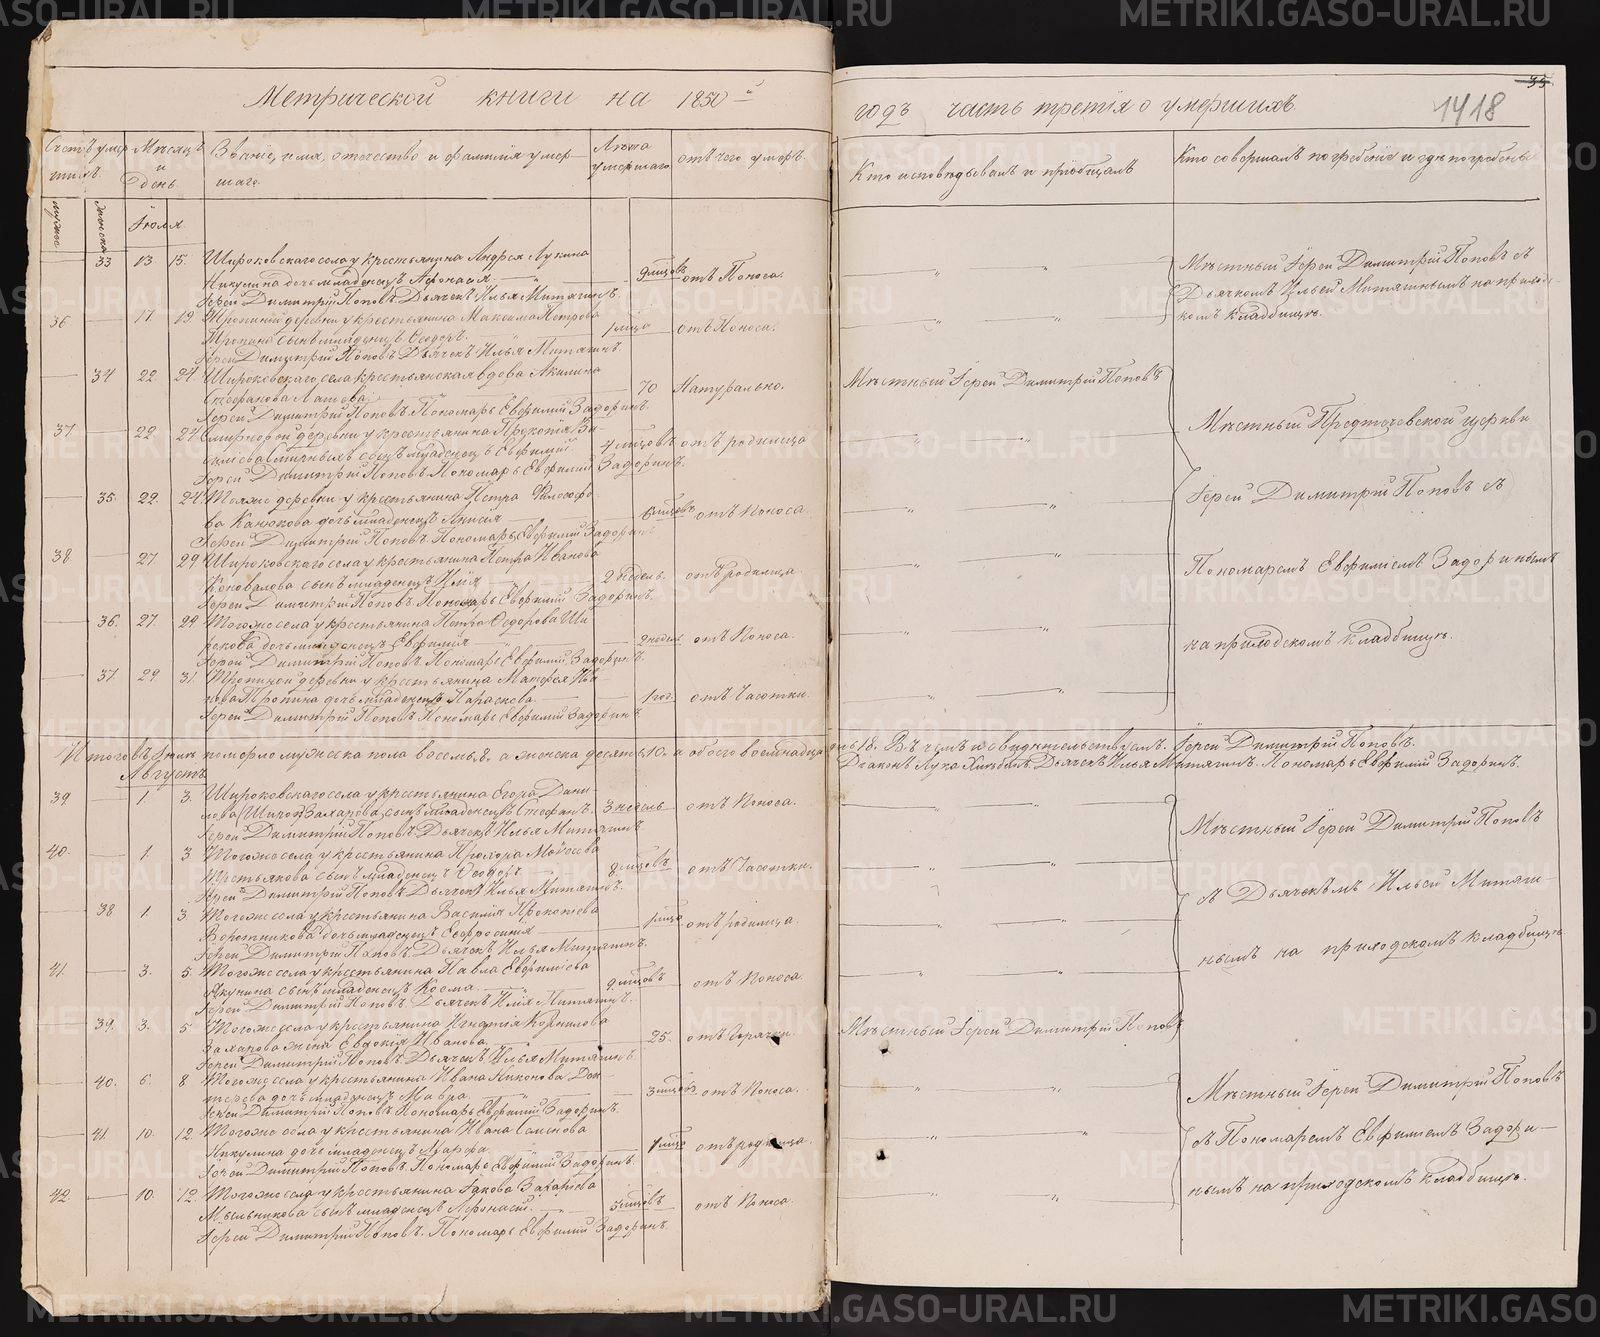 Метрической книги на 1850-й
годъ часть третія о умершихъ
35
1418
Счетъ умершихъ
Мѣсяцъ и день
Званіе, имя, отчество и фамилія умершаго.
Лѣта умершаго
отъ чего умеръ.
Кто исповѣдывалъ и пріобщалъ
Кто совершалъ погребеніе и гдѣ погребены
мужеска
женска
Іюля
33 13 15. Широковскаго села у крестьянина Андрея Лукина
дочь младенецъ Афонасія 9 мѣсцовъ отъ Поноса.
Іерей Димитрій Поповъ Дьячекъ Илья Митягинъ.
36 17 19. деревни у крестьянина Максима Петрова
сынъ младенецъ Ѳеодоръ. 1 мѣсцъ отъ Поноса.
Іерей Димитрій Поповъ Дьячекъ Илья Митягинъ.
Мѣстный Іерей Димитрій Поповъ съ
Дьячкомъ Ильей Митягинымъ на приходс-
комъ кладбищѣ.
34 22 24 Широковскаго села крестьянская вдова Акилина
Стефанова 70 Натурально.
Іерей Димитрій Поповъ. Пономарь Евфимій Задоринъ.
Мѣстный Іерей Димитрій Поповъ
37 22 24 деревни у крестьянина Прокопія
сынъ младенецъ Евфимій 4 мѣсцовъ отъ родимца
Іерей Димитрій Поповъ. Пономарь Евфимій Задоринъ.
35. 22. 24 Тояже деревни у крестьянина Петра
ва Канюкова дочь младенецъ Анисія 6 мѣсцовъ отъ Поноса
Іерей Димитрій Поповъ. Пономарь Евфимій Задоринъ
38 27. 29 Широковскаго села у крестьянина Петра Иванова
Коновалова сынъ младенецъ Илія 2 недель. отъ родимца.
Іерей Димитрій Поповъ. Пономарь Евфимій Задоринъ.
36. 27. 29 Тогоже села у крестьянина Петра Ѳедорова Ши-
рокова дочь младенецъ Евфимія 2 недель отъ Поноса.
Іерей Димитрій Поповъ Пономарь Евфимій Задоринъ.
37 29 31. Тропиной деревни у крестьянина Матфея Ива-
нова Тропина дочь младенецъ Параскова. 1 год. отъ Чахотки.
Іерей Димитрій Поповъ Пономарь Евфимій Задоринъ
Мѣстный Предтечевской церкви
Іерей Димитрій Поповъ съ
Пономаремъ Евфиміемъ Задоринымъ
на приходскомъ кладбищѣ.
Итого въ Іюлѣ померло мужеска пола восемь, 8. а женска десять, 10. а обоего восемнадцать 18. Въ чемъ и свидѣтельствуемъ. Іерей Димитрій Поповъ.
Діаконъ Лука Дьячекъ Илья Митягинъ. Пономарь Евфимій Задоринъ.
Августъ
39. 1. 3. Широковскаго села у крестьянина Егора Дани-
лова Захарова сынъ младенецъ Стефанъ. 3 недель отъ Поноса.
Іерей Димитрій Поповъ. Дьячекъ Илья Митягинъ
40. 1. 3 Тогоже села у крестьянина Прохора Моѵсеева
сынъ младенецъ Ѳеодоръ мѣсцовъ отъ Чахотки.
Іерей Димитрій Поповъ Дьячекъ Илья Митягинъ.
38 1. 3 Тогоже села у крестьянина Василія Прокопіева
Воротникова дочь младенецъ Евфросинія 1 мѣсцъ отъ родимца.
Іерей Димитрій Поповъ. Дьячекъ Илья Митягинъ.
41. 3. 5. Тогоже села у крестьянина Павла Евфиміева
сынъ младенецъ Косма. мѣсцовъ отъ Поноса.
Іерей Димитрій Поповъ. Дьячекъ Илія Митягинъ.
Мѣстный Іерей Димитрій Поповъ
съ Дьячкѣмъ Ильей Митяги-
нымъ на приходскомъ кладбищѣ
39. 3. 5 Тогоже села у крестьянина Игнатія Корнилова
Захарова жена Евдокія Иванова. 25. отъ Горячки.
Іерей Димитрій Поповъ. Дьячекъ Илья Митягинъ.
Мѣстный Іерей Димитрій Поповъ
40. 6. 8 Тогоже села у крестьянина Ивана Никонова
дочь младенецъ Мавра 3 мѣсцовъ отъ Поноса.
Іерей Димитрій Поповъ Пономарь Евфимій Задоринъ.
41. 10. 12. Тогоже села у крестьянина Ивана Семенова
Никулина дочь младенецъ Марфа. 1 мѣсцъ отъ родимца.
Іерей Димитрій Поповъ. Пономарь Евфимій Задоринъ.
42 10. 12. Тогоже села у крестьянина Іакова Захаріева
Мыльникова сынъ младенецъ Афонасій. мѣсцовъ отъ Поноса.
Іерей Димитрій Поповъ. Пономарь Евфимій Задоринъ.
Мѣстный Іерей Димитрій Поповъ
съ Пономаремъ Евфиміемъ Задори-
нымъ на приходскомъ кладбищѣ.
METRIKI.GASO-URAL.RU